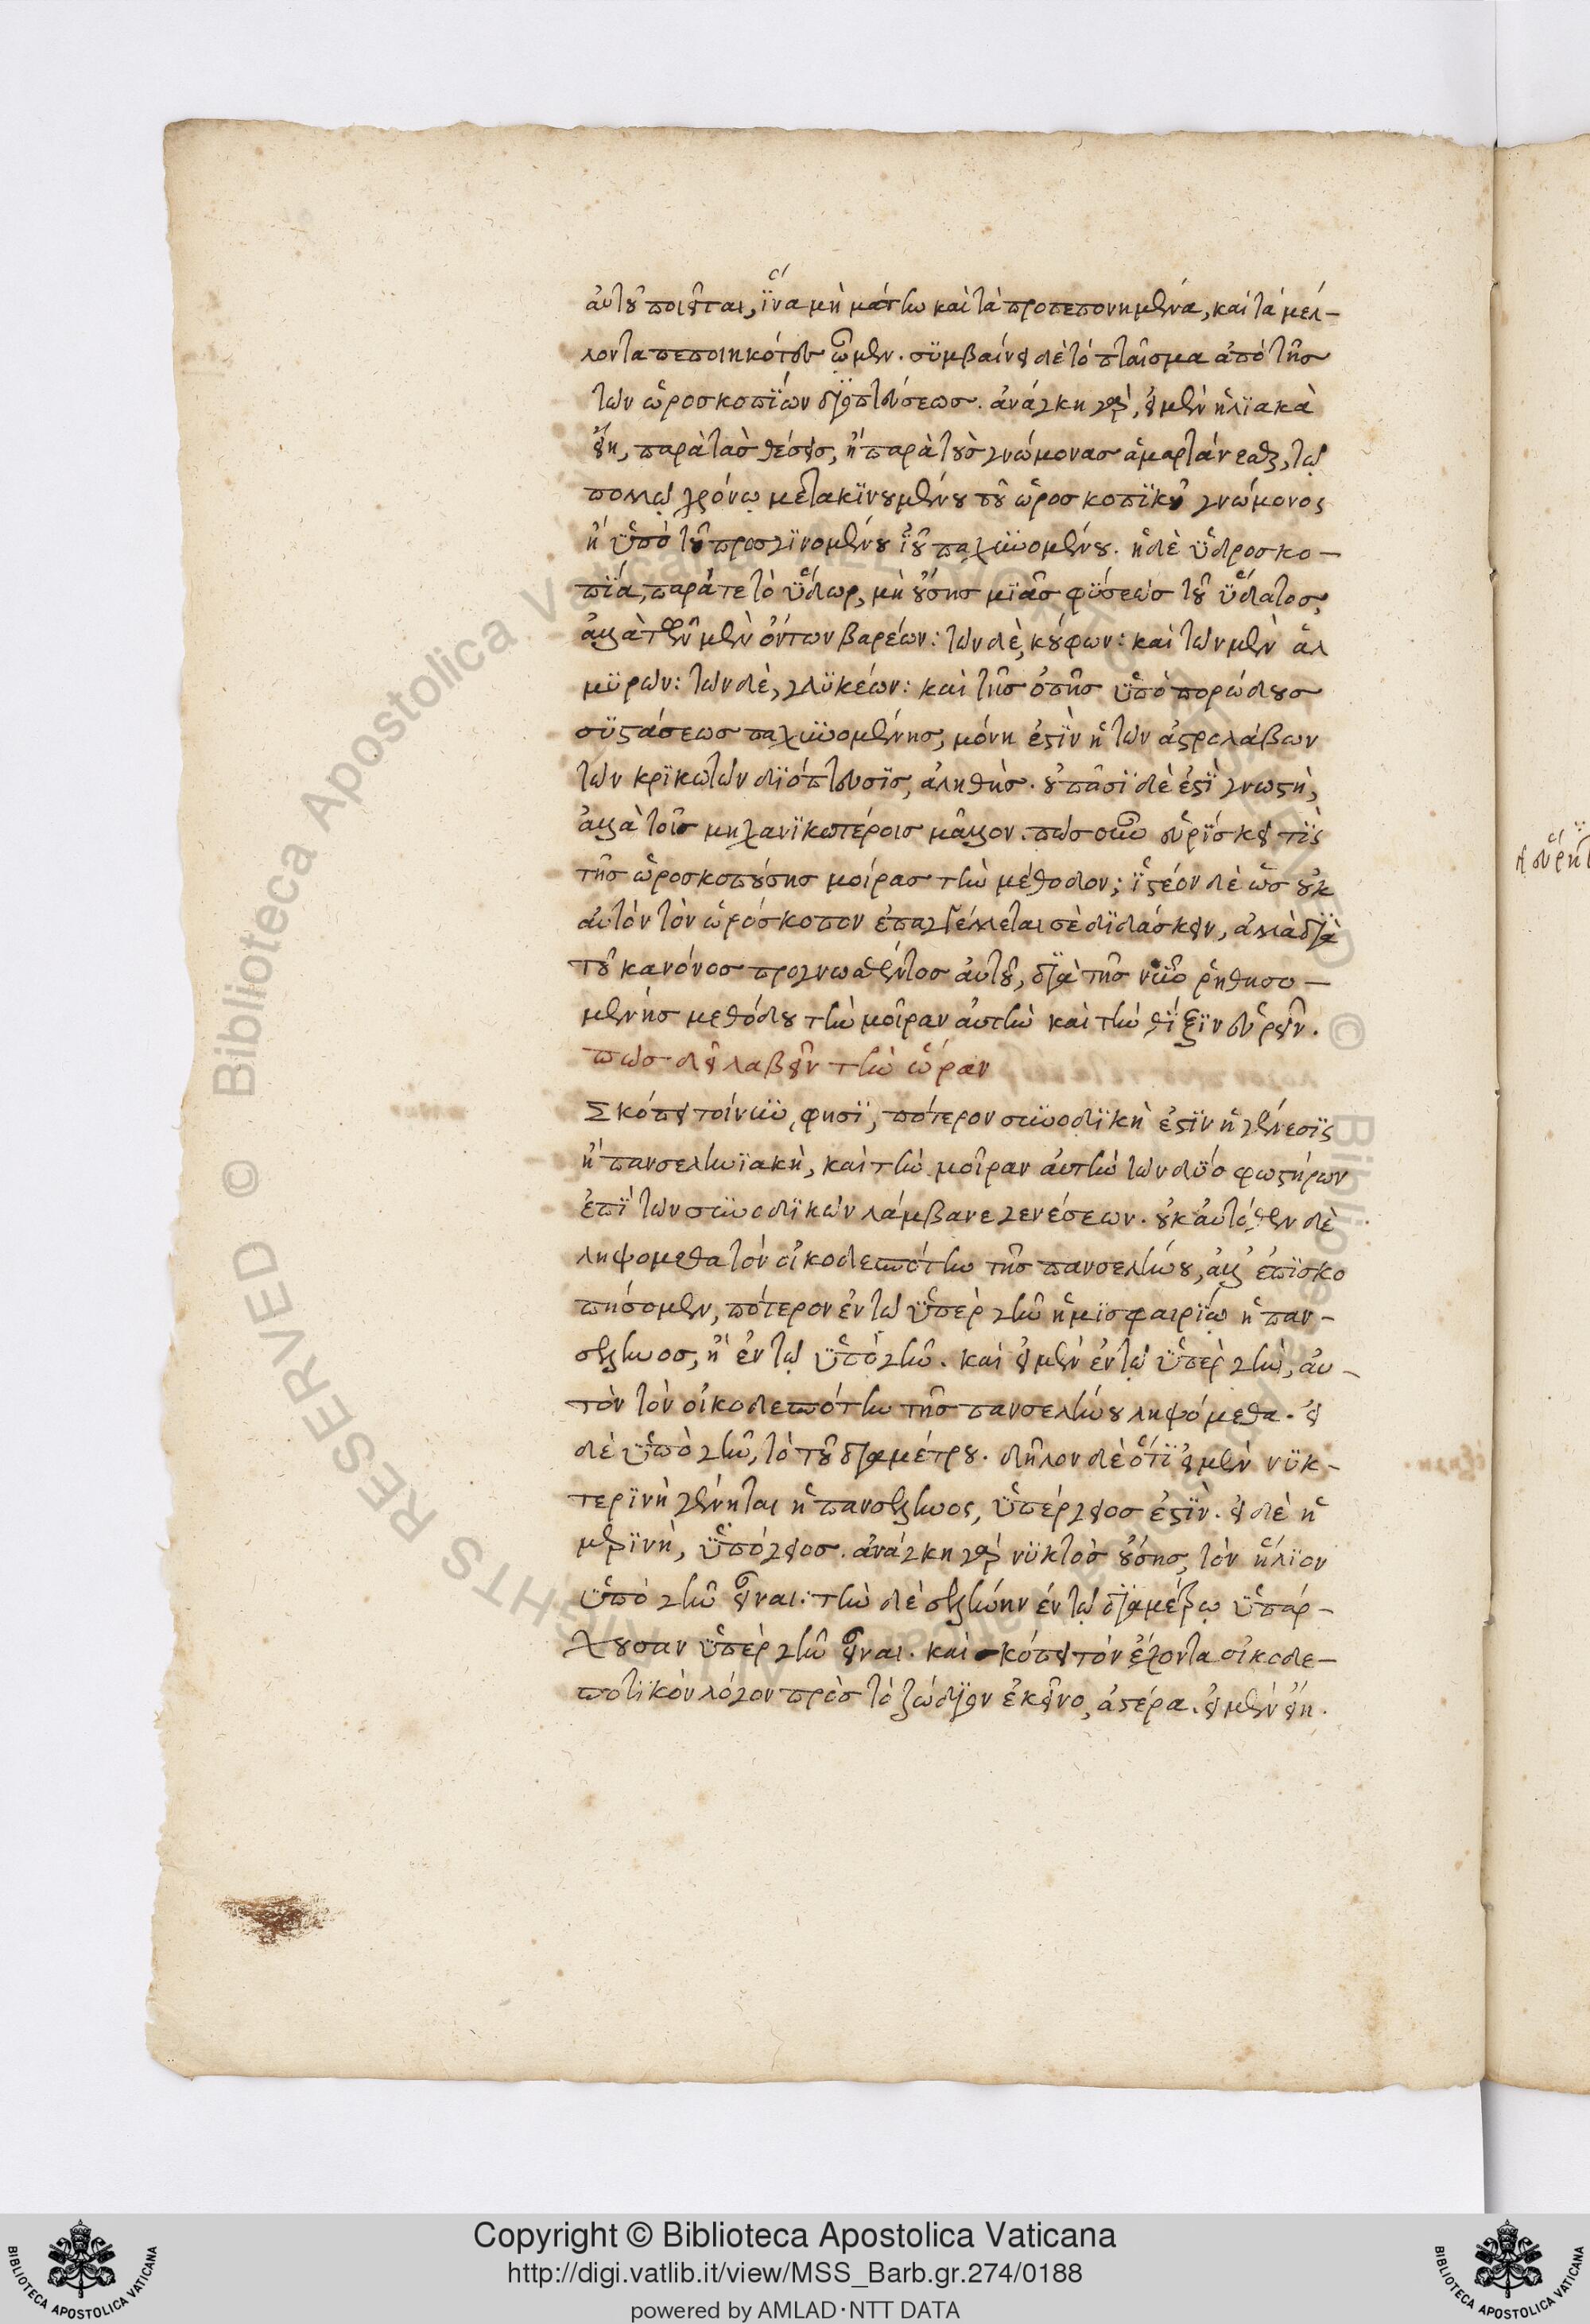 αὐτοῦ ποιεῖται, ἵνα μὴ μάτην καὶ τὰ προπεπονημένα, καὶ τὰ μέλ-
λοντα πεποιηκότες ὦμεν. συμβαίνει δὲ τὸ πταῖσμα ἀπὸ τῆς
τῶν ὡροσκοπίων διοπτεύσεως. ἀνάγκη γὰρ, εἰ μὲν ἡλιακὰ
εἴη, παρὰ τὰς θέσεις, ἢ παρὰ τοὺς γνώμονας ἁμαρτάνεσθαι, τῷ
πολλῷ χρόνῳ μετακινουμένου τοῦ ὡροσκοπικοῦ γνώμονος
ἢ ὑπὸ τοῦ προσγινομένου ἰοῦ παχυνομένου. ἡ δὲ ὑδροσκο-
πία, παρά τε τὸ ὕδωρ, μὴ οὔσης μιᾶς φύσεως τοῦ ὕδατος,
ἀλλὰ τῶν μὲν ὄντων βαρέων: τῶν δὲ, κούφων: καὶ τῶν μὲν ἁλ
μυρῶν: τῶν δὲ, γλυκέων: καὶ τῆς ὀπῆς ὑπὸ πορώδους
συστάσεως παχυνομένης, μόνη ἐστὶν ἡ τῶν ἀστρολάβων
τῶν κρικωτῶν διόπτευσις, ἀληθής. οὐ πᾶσι δὲ ἐστὶ γνωστὴ,
ἀλλὰ τοῖς μηχανικωτέροις μᾶλλον. πῶς οὖν εὑρίσκει τις
τῆς ὡροσκοπούσης μοίρας τὴν μέθοδον; ἰστέον δὲ ὡς οὐκ
αὐτὸν τὸν ὡρόσκοπον ἐπαγγέλλεται σε διδάσκειν, ἀλλὰ διὰ
τοῦ κανόνος προγνωσθέντος αὐτοῦ, διὰ τῆς νῦν ῥηθησο-
μένης μεθόδου τὴν μοῖραν αὐτὴν καὶ τὴν θίξιν εὑρεῖν.
πῶς δεῖ λαβεῖν τὴν ὥραν
Σκόπει τοίνυν, φησὶ, πότερον συνοδικὴ ἐστὶν ἡ γένεσις
ἢ πανσεληνιακὴ, καὶ τὴν μοῖραν αὐτὴν τῶν δύο φωστήρων
ἐπὶ τῶν συνοδικῶν λάμβανε γενέσεων. οὐκ αὐτόθεν δὲ
ληψόμεθα τὸν οἰκοδεσπότην τῆς πανσελήνου, ἀλλ' ἐπισκο
πήσομεν, πότερον ἐν τῷ ὑπὲρ γῆν ἡμισφαιρίῳ ἡ παν-
σέληνος, ἢ ἐν τῷ ὑπὸ γῆν. καὶ εἰ μὲν ἐν τῷ ὑπὲρ γῆν, αὐ-
τὸν τὸν οἰκοδεσπότην τῆς πανσελήνου ληψόμεθα. εἰ
δὲ ὑπὸ γῆν, τὸ τοῦ διαμέτρου. δῆλον δὲ ὅτι εἰ μὲν νυκ-
τερινὴ γένηται ἡ πανσέληνος, ὑπέργειος ἐστὶν. εἰ δὲ ἡ
μερινὴ, ὑπόγειος. ἀνάγκη γὰρ νυκτὸς οὔσης, τὸν ἥλιον
ὑπὸ γῆν εἶναι: τὴν δὲ σελήνην ἐν τῷ διαμέτρῳ ὑπάρ-
χουσαν ὑπὲρ γῆν εἶναι. καὶ σκόπει τὸν ἔχοντα οἰκοδε-
σποτικὸν λόγον πρὸς τὸ ζώδιον ἐκεῖνο, ἀστέρα. εἰ μὲν εἴη.
Copyright © Biblioteca Apostolica Vaticana
http://digi.vatlib.it/view/MSS_Barb.gr.274/0188
powered by AMLAD·NTT DATA